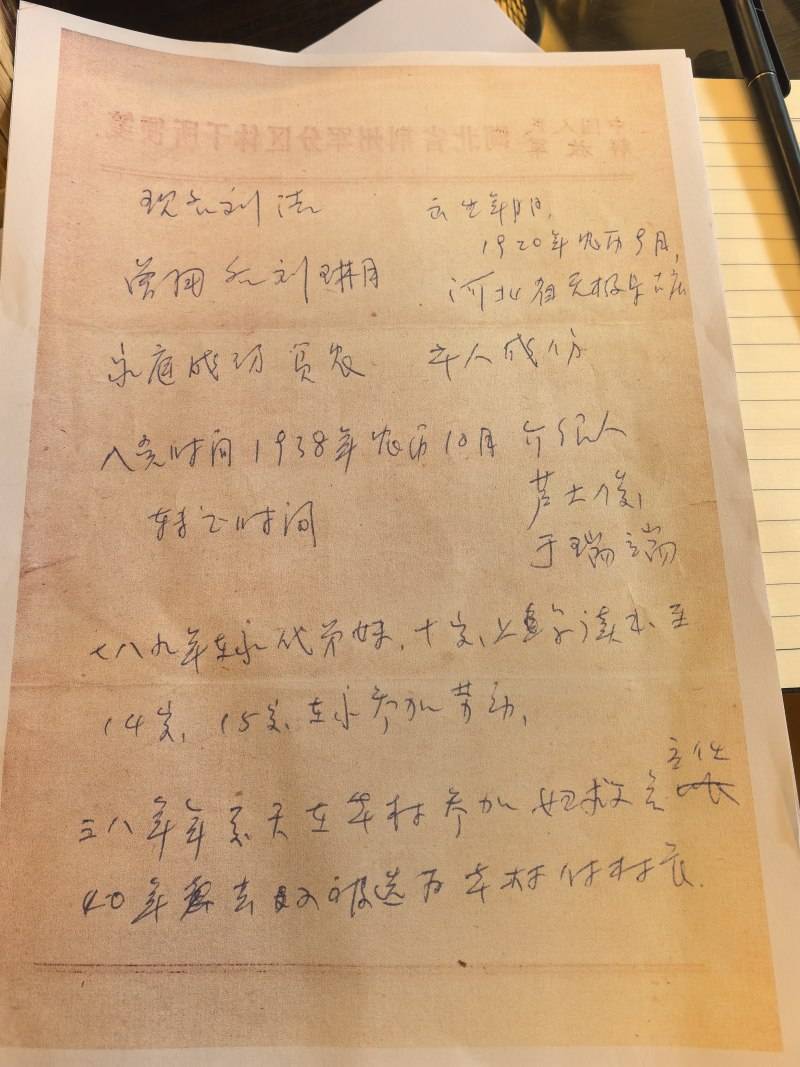 中国人民解放军湖北省荆州军分区休干所便笺
现名刘洁 出生年月日,
1920年农历9月,
曾用名刘琳月 河北省无极县
家庭成份 贫农 本人成份
入党时间 1938年农历10月 介绍人
芦士俊,
转正时间
于瑞端
七八九年在家代弟妹,十岁上学读书至
14岁,15岁在家参加劳动,
主任
三八年年夏天在本村参加妇救会
40年 又被选为本村付村长.